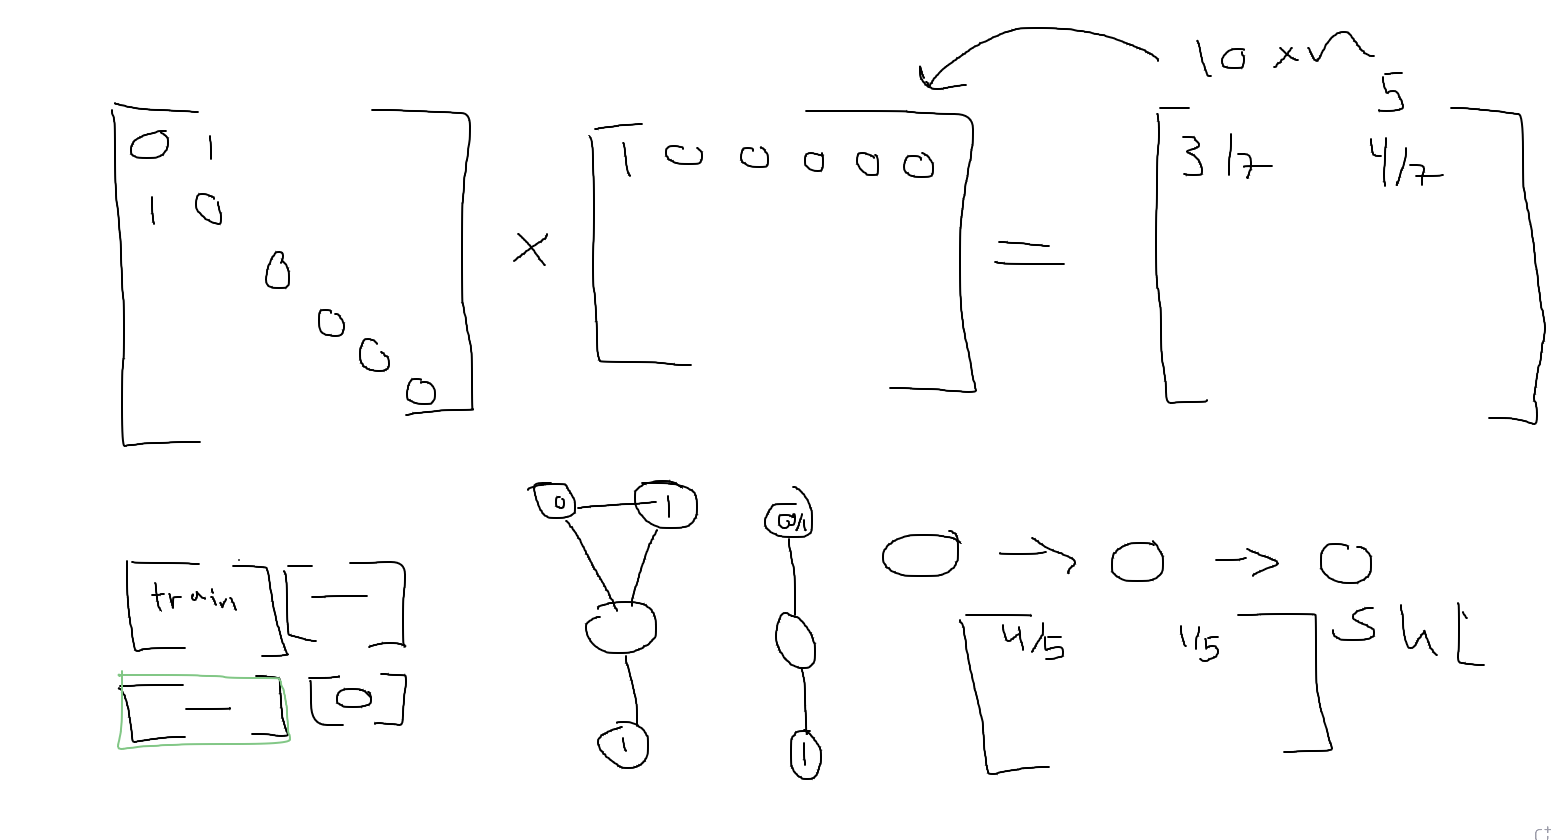 10 x
5
0 1
1 0
0
0
0
0
x
1 0 0 0 0 0
=
3/7 4/7
train
0 1
1
0/1
1
0
4/5 1/5